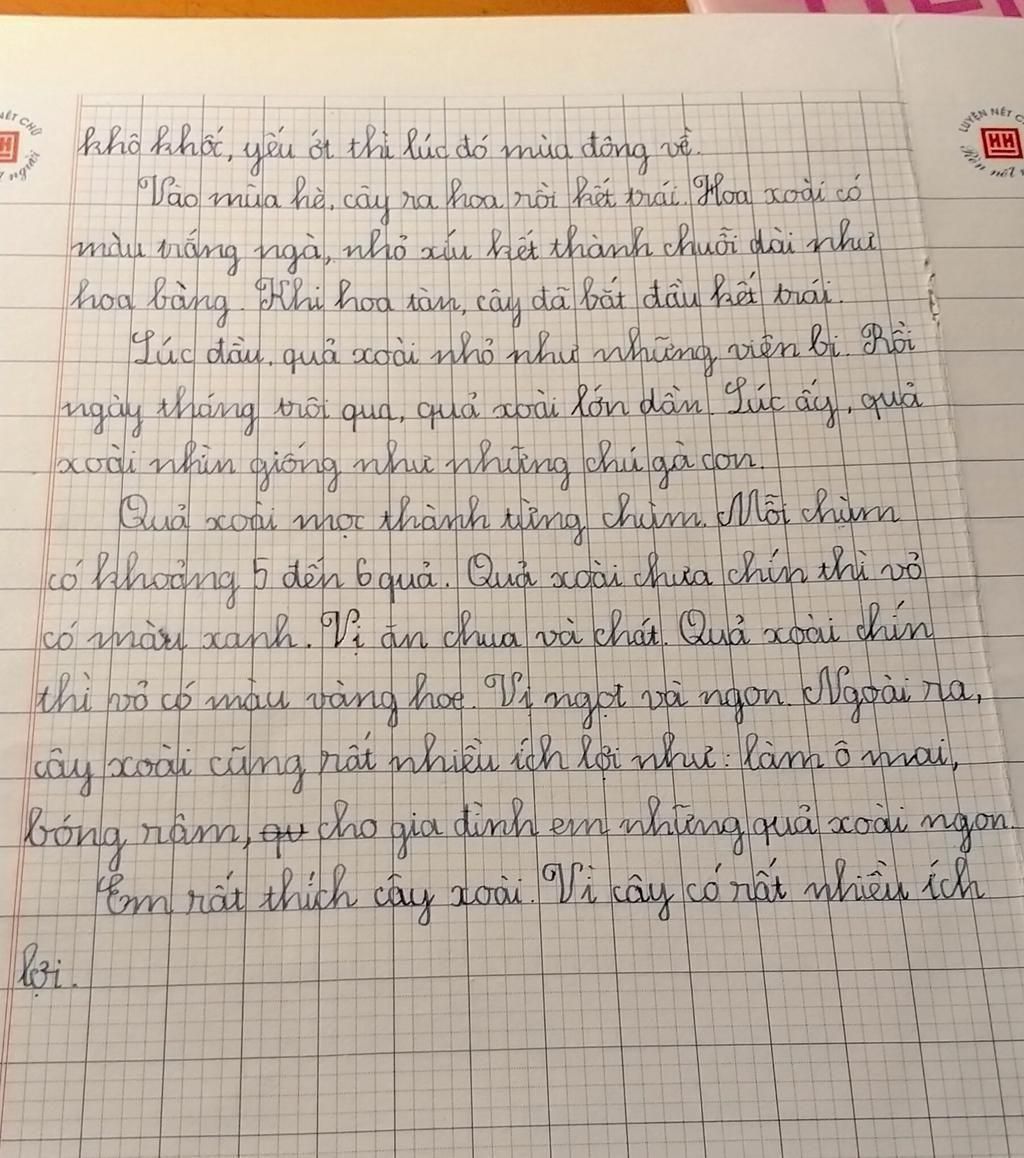 khô khốc, yếu ớt thì lúc đó mùa đông về.
Vào mùa hè, cây ra hoa rồi kết trái. Hoa xoài có
màu trắng ngà, nhỏ xíu kết thành chuỗi dài như
hoa bàng. Khi hoa tàn, cây đã bắt đầu kết trái.
Lúc đầu, quả xoài nhỏ như những viên bi. Rồi
ngày tháng trôi qua, quả xoài lớn dần. Lúc ấy, quả
xoài nhìn giống như những chú gà con.
Quả xoài mọc thành từng chùm. Mỗi chùm
có khoảng 5 đến 6 quả. Quả xoài chưa chín thì vỏ
có màu xanh. Vị ăn chua và chát. Quả xoài chín
thì vỏ có màu vàng hoe. Vị ngọt và ngon. Ngoài ra,
cây xoài cũng rất nhiều ích lợi như: làm ô mai,
bóng râm, qu cho gia đình em những quả xoài ngon.
Em rất thích cây xoài. Vì cây có rất nhiều ích
lợi.
NÉT CHỮ
người
LUYỆN NÉT C
HH
Rèn nết